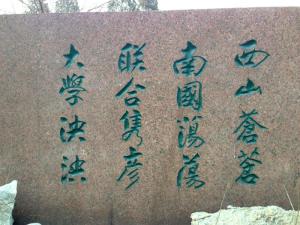 西山蒼蒼
南國蕩蕩
联合雋彥
大學泱泱